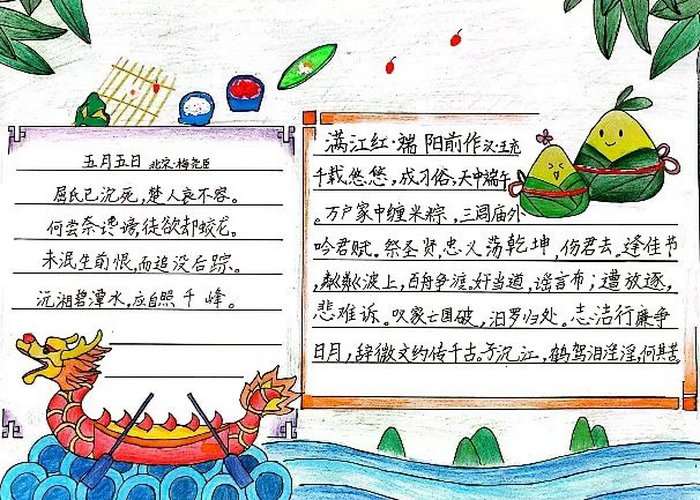 五月五日 北宋·梅尧臣
屈氏已沉死，楚人哀不容。
何尝奈谗谤，徒欲却蛟龙。
未泯生前恨，而追没后踪。
沅湘碧潭水，应自照千峰。
满江红·端阳前作 汉·王充
千载悠悠，成习俗、天中端午
。万户家中缠米粽，三闾庙外
吟君赋。祭圣贤，忠义荡乾坤，伤君去。逢佳节
，粼粼波上，百舟争渡。奸当道，谣言布；遭放逐，
悲难诉。叹家亡国破，汨罗归处。志洁行廉争
日月，辞微文约传千古。方沉江，鹤驾泪淫淫，何其苦